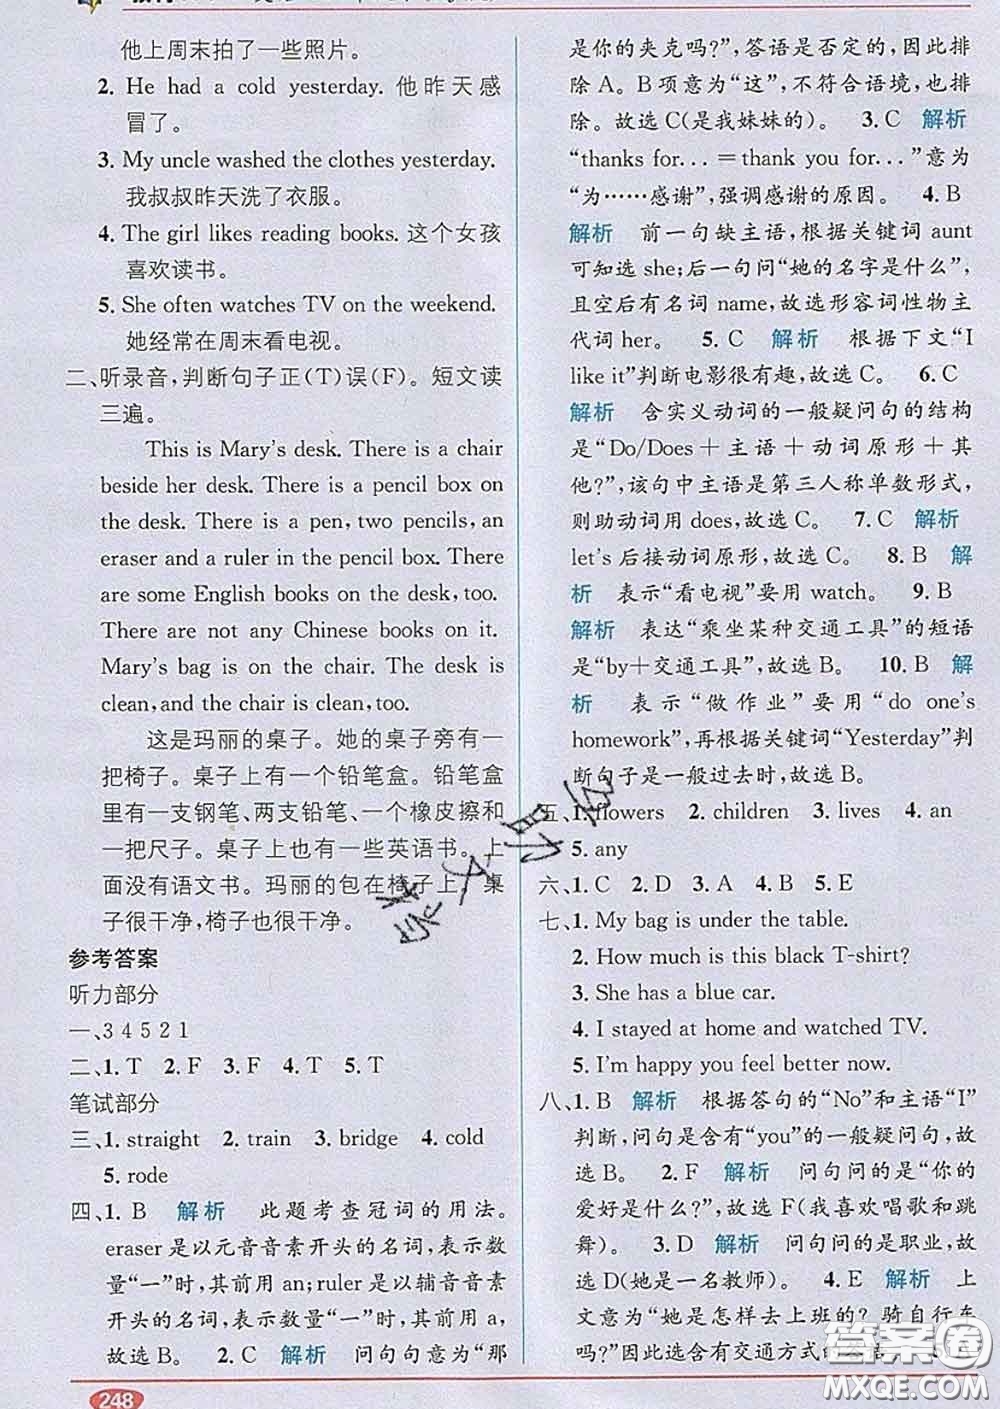 他上周末拍了一些照片。
2. He had a cold yesterday. 他昨天感
冒了。
3. My uncle washed the clothes yesterday.
我叔叔昨天洗了衣服。
4. The girl likes reading books. 这个女孩
喜欢读书。
5. She often watches TV on the weekend.
她经常在周末看电视。
二、听录音,判断句子正(T)误(F)。短文读
三遍。
This is Mary's desk. There is a chair
beside her desk. There is a pencil box on
the desk. There is a pen, two pencils, an
eraser and a ruler in the pencil box. There
are some English books on the desk, too.
There are not any Chinese books on it.
Mary's bag is on the chair. The desk is
clean, and the chair is clean, too.
这是玛丽的桌子。她的桌子旁有一
把椅子。桌子上有一个铅笔盒。铅笔盒
里有一支钢笔、两支铅笔、一个橡皮擦和
一把尺子。桌子上也有一些英语书。上
面没有语文书。玛丽的包在椅子上。桌
子很干净,椅子也很干净。
参考答案
听力部分
一、3 4 5 2 1
二、1. T 2. F 3. F 4. T 5. T
笔试部分
三、1. straight 2. train 3. bridge 4. cold
5. rode
四、1. B 解析 此题考查冠词的用法。
eraser是以元音音素开头的名词,表示数
量“一”时,其前用an;ruler是以辅音音素
开头的名词,表示数量“一”时,其前用a,
故选B。 2. C 解析 问句句意为“那
248
是你的夹克吗?”,答语是否定的,因此排
除A。B项意为“这”,不符合语境,也排
除。故选C(是我妹妹的)。 3. C 解析
“thanks for...=thank you for...”意为
“为……感谢”,强调感谢的原因。 4. B
解析 前一句缺主语,根据关键词aunt
可知选she;后一句问“她的名字是什么”,
且空后有名词name,故选形容词性物主
代词her。 5. C 解析 根据下文“I
like it”判断电影很有趣,故选C。 6. C
解析 含实义动词的一般疑问句的结构
是“Do/Does+主语+动词原形+其
他?”,该句中主语是第三人称单数形式,
则助动词用does,故选C。 7. C 解析
let's后接动词原形,故选C。 8. B 解
析 表示“看电视”要用watch。 9. B
解析 表达“乘坐某种交通工具”的短语
是“by+交通工具”,故选B。 10. B 解
析 表示“做作业”要用“do one's
homework”,再根据关键词“Yesterday”判
断句子是一般过去时,故选B。
五、1. flowers 2. children 3. lives 4. an
5. any
六、1. C 2. D 3. A 4. B 5. E
七、1. My bag is under the table.
2. How much is this black T-shirt?
3. She has a blue car.
4. I stayed at home and watched TV.
5. I'm happy you feel better now.
八、1. B 解析 根据答句的“No”和主语“I”
判断,问句是含有“you”的一般疑问句,故
选B。 2. F 解析 问句问的是“你的
爱好是什么?”,故选F(我喜欢唱歌和跳
舞)。 3. D 解析 问句问的是职业,故
选D(她是一名教师)。 4. E 解析 上
文意为“她是怎样去上班的?骑自行车
吗?”因此选含有交通方式的
答案圈
MXQE.COM